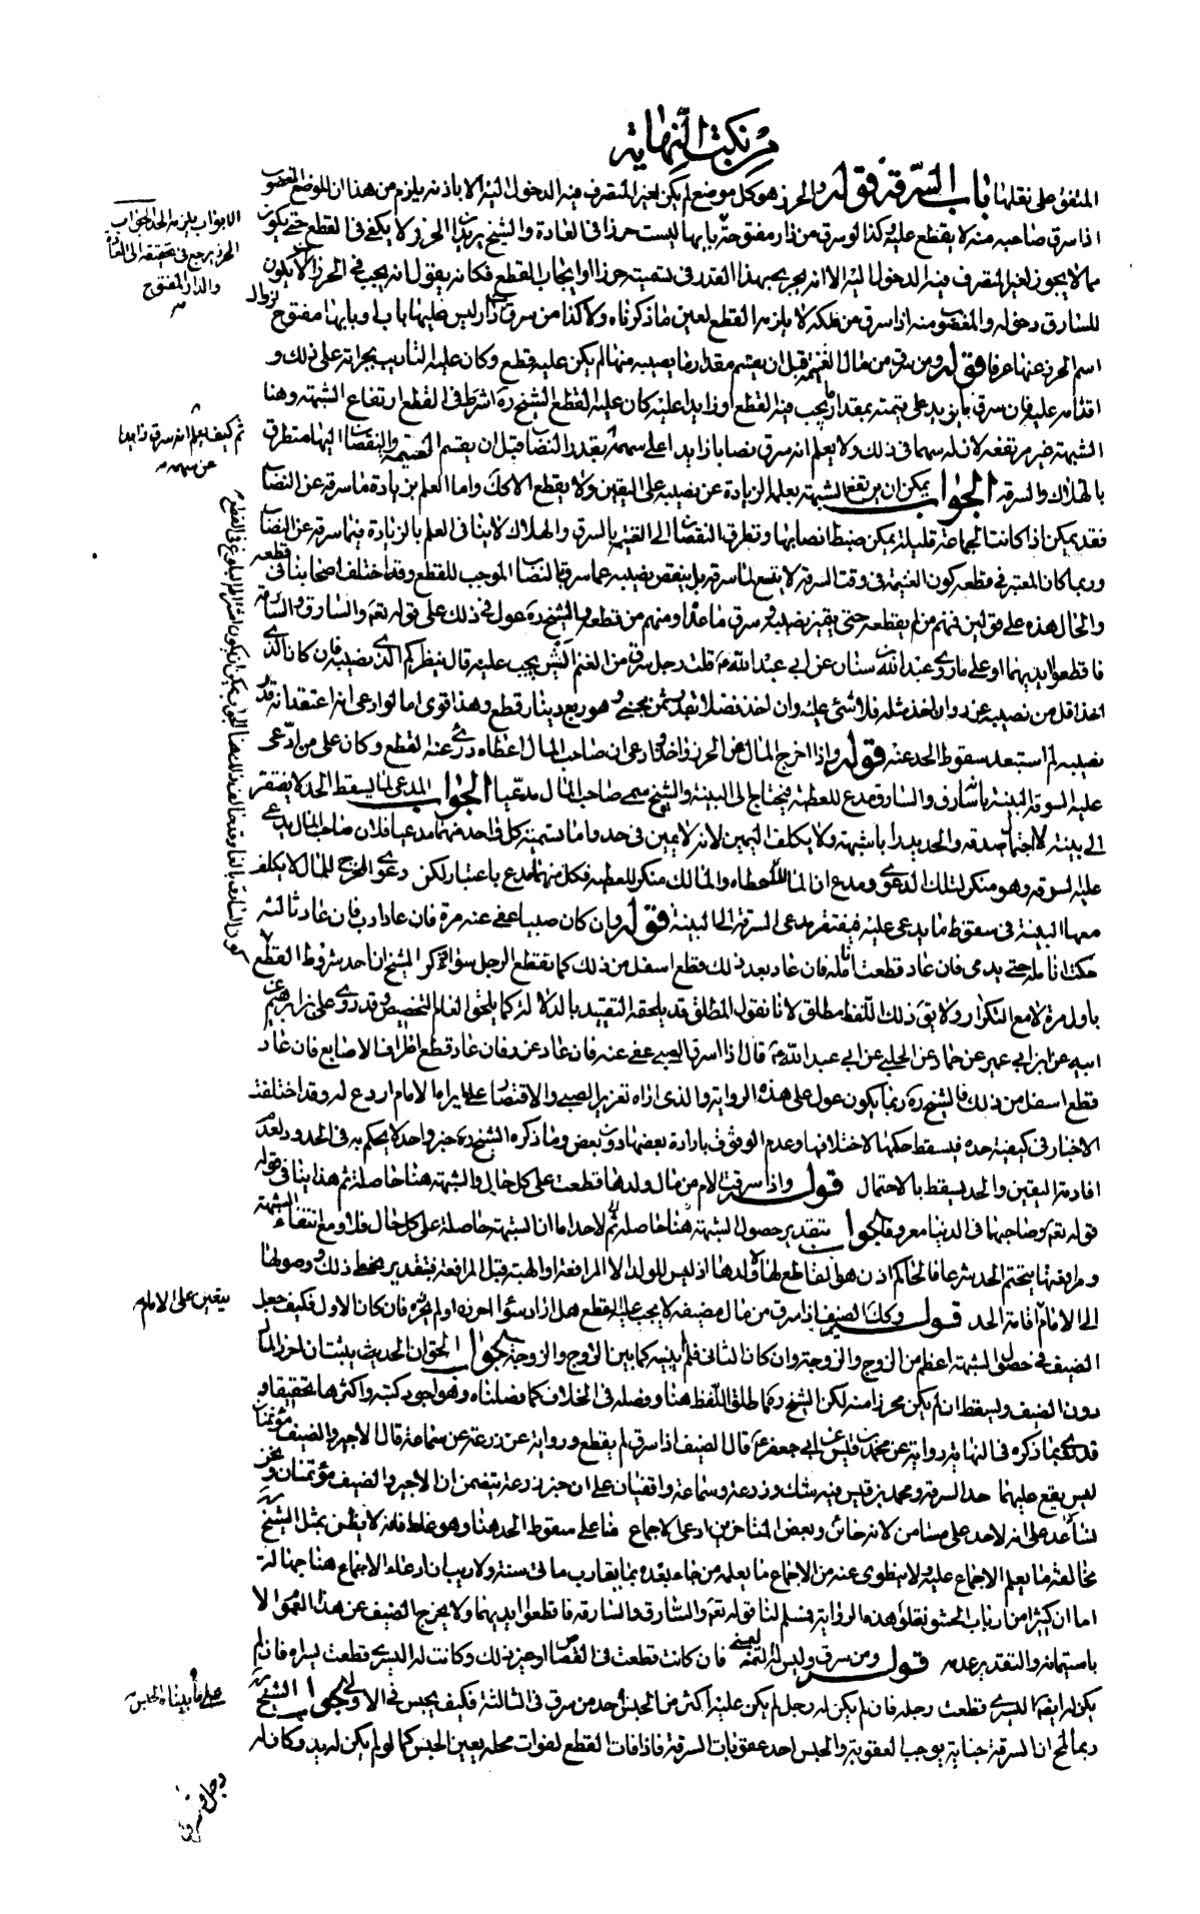 من نكت النهاية
المتفق على نقلها باب السرقة قوله والحرز هو كل موضع لم يكن لغير المتصرف فيه الدخول اليه الا باذنه يلزم من هذا ان الموضع المغصوب
اذا سرق صاحبه منه لا يقطع عليه وكذا لو سرق من دار مفتوحة بابها ليست حرزا في العادة والشيخ يريد ان الحرز لا يكفي في القطع حتى يكون
مما لا يجوز لغير المتصرف فيه الدخول اليه الا انه يجريه بهذا القدر في تسميته حرزا وايجاب القطع فكانه يقول انه يجب في الحرز ان لا يكون
للسارق دخوله والمغصوب منه اذا سرق من ملكه لا يلزمه القطع لعين ما ذكرناه وكذا من سرق من دار ليس عليها باب او بابها مفتوح لزوال
اسم الحرز عنها عرفا قوله ومن سرق من مال الغنيمة قبل ان يقسم مقدار ما يصيبه منها لم يكن عليه قطع وكان عليه التاديب بجراته على ذلك و
اقدامه عليه فان سرق ما يزيد على قيمته بمقدار ما يجب فيه القطع او زايدا عليه كان عليه القطع الشيخ ره اشترط في القطع ارتفاع الشبهة وهنا
الشبهة غير مرتفعة لان له سهما في ذلك ولا يعلم انه سرق نصابا زايدا على سهمه بقدر النصاب قبل ان يقتسم الغنيمة والنقصان اليها متطرق
بالهلاك والسرقة الجواب يمكن ان يرتفع الشبهة بعلم الزيادة عن نصيبه على اليقين ولا يقطع الا كك واما العلم بزيادة ما سرقه عن النصاب
فقد يمكن اذا كانت الجماعة قليلة يمكن ضبط انصبائها وتطرق النقصان الى الغنيمة بالسرق والهلاك لا ينافي العلم بالزيادة فيما سرقه عن النصاب
وربما كان المعتبر في قطعه كون الغنيمة في وقت السرقة لا يتسع لما سرقه بل ينقص نصيبه عما سرق بالنصاب الموجب للقطع وقد اختلف اصحابنا في قطعه
والحال هذه على قولين فمنهم من لم يقطعه حتى يتميز نصيبه و سرق ما عداه ومنهم من قطعه والشيخ ره عول في ذلك على قوله تعالى والسارق والسارقة
فاقطعوا ايديهما او على ما روى عبد الله بن سنان عن ابي عبد الله ع قلت رجل سرق من المغنم الشيء يجب عليه قال ينظر كم الذي نصيبه فان كان الذي
اخذ اقل من نصيبه عزر وان اخذ مثله فلا شيء عليه وان اخذ فضلا بقدر ثمن مجن وهو ربع دينار قطع وهذا قوي اما لو ادعى انه اعتقد انه قدر
نصيبه لم استبعد سقوط الحد عنه قوله واذا اخرج المال من الحرز واخذ وادعى ان صاحب المال اعطاه درئ عنه القطع وكان على من ادعى
عليه السرقة البينة بانه سارق والسارق مدع للعطية فيحتاج الى البينة والشيخ سمى صاحب المال مدعيا الجواب المدعي لما يسقط الحد لا يفتقر
الى بينة لاحتمال صدقه والحد يدرا بالشبهة ولا يكلف اليمين لانه لا يمين في حد واما تسمية كل واحد منهما مدعيا فلان صاحب المال يدعي
عليه السرقة وهو منكر لتلك الدعوى ومدع ان المالك اعطاه والمالك منكر للعطية فكل منهما مدع باعتبار لكن دعوى المخرج للمال لا يكلف
معها البينة في سقوط ما يدعى عليه فيفتقر مدعي السرقة الى البينة قوله وان كان صبيا عفي عنه مرة فان عاد ادب فان عاد ثالثة
حكت انامله حتى يدمى فان عاد قطعت انامله فان عاد بعد ذلك قطع اسفل من ذلك كما يقطع الرجل سواء ذكر الشيخ ان احد شروط القطع
باول مرة لا مع التكرار ولا يق ذلك اللفظ مطلق لانا نقول المطلق قد يلحقه التقييد بالدلالة كما يلحق العام التخصيص وقد روى علي بن ابرهيم عن
ابيه عن ابن ابي عمير عن حماد عن الحلبي عن ابي عبد الله ع قال اذا سرق الصبي عفي عنه فان عاد عزر فان عاد قطع اطراف الاصابع فان عاد
قطع اسفل من ذلك فالشيخ ره ربما يكون عول على هذه الرواية والذي اراه تعزير الصبي والاقتصار على ما يراه الامام اردع له وقد اختلفت
الاخبار في كيفية حده فيسقط حكمها لاختلافها وعدم الوثوق بارادة بعضها دون بعض وما ذكره الشيخ ره خبر واحد لا يحكم به في الحدود لعدم
افادته اليقين والحد يسقط بالاحتمال قوله واذا سرقت الام من مال ولدها قطعت على كل حال والشبهة هنا حاصلة ثم هذا ينافي قوله
قوله تعالى وصاحبهما في الدنيا معروفا الجواب بتقدير حصول الشبهة هنا حاصلة لا حد اما ان الشبهة حاصلة على كل حال فلا ومع انتفاء الشبهة
ومرافعتها يتحتم الحد شرعا فالحاكم اذن هو القاطع لها لا ولدها اذ ليس للولد الا المرافعة او الهبة قبل المرافعة فبتقدير تخطي ذلك ووصولها
الى الامام اقامة الحد قوله وكك الضيف اذا سرق من مال مضيفه لا يجب عليه القطع هل اراد سواء احرزه او لم يحرزه فان كان الاول فكيف جعل
الضيف في حصول الشبهة اعظم من الزوج والزوجة وان كان الثاني فلم لم يبينه كما بين الزوج والزوجة الجواب الحق ان الحد يثبت ان احرز المال
دون الضيف ويسقط ان لم يكن محرزا منه لكن الشيخ ره اطلق اللفظ هنا وفصله في الخلاف كما فصلناه وهو اجود كتبه واكثرها تحقيقا و
قد تبع بما ذكره في النهاية رواية عن محمد بن قيس عن ابي جعفر ع قال الضيف اذا سرق لم يقطع ورواية عن زرعة عن سماعة قال الاجير والضيف مؤتمنان
ليس يقع عليهما حد السرقة ومحمد بن قيس فيه شك وزرعة وسماعة واقفيان على ان خبر زرعة يتضمن ان الاجير والضيف مؤتمنان ونحن
نساعد على انه لا حد على مستامن لانه خائن وبعض المتاخرين ادعى الاجماع على سقوط الحد هنا وهو غلط فانه لا يظن بمثل الشيخ ره
مخالفة ما يعلم الاجماع عليه ولا ينطوي عنه من الاجماع ما يعلمه من جاء بعده بما يقارب مائتي سنة ولا ريب ان ادعاء الاجماع هنا جهالة
اما ان كثيرا من ارباب الحشو نقلوا هذه الرواية فمسلم لنا قوله تعالى والسارق والسارقة فاقطعوا ايديهما ولا يخرج الضيف عن هذا العموم الا
باستيمانه والتقدير عدمه قوله ومن سرق وليس له اليمنى فان كانت قطعت في القصاص او غير ذلك وكانت له اليسرى قطعت يسراه فان لم
يكن له ايضا اليسرى قطعت رجله فان لم يكن له رجل لم يكن عليه اكثر من الحبس احد من سرق في الثالثة فكيف يحبس في الاولى الجواب الشيخ ره
ربما لمح ان السرقة جناية يوجب العقوبة والحبس احد عقوبات السرقة فاذا فات القطع لفوات محله يعين الحبس كما لو لم يكن له يد وكان له
الابواب يلزمه الحد الجواب
الحرز يرجع في حقيقته الى العادة
والدار المفتوح
ثم كيف يعلم انه سرق زايدا
عن سهمه
يتعين على الامام
على ما بيناه الحبس